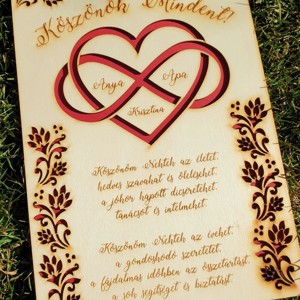 Köszönök Mindent!
Anya Apa
Krisztina
Köszönöm Nektek az életet,
kedves szavakat és öleléseket,
a jókor kapott dicséreteket,
tanácsot és intelmeket.
Köszönöm Nektek az éveket,
a gondoskodó szeretetet,
a fájdalmas időkben az összetartást,
a sok segítséget és biztatást.